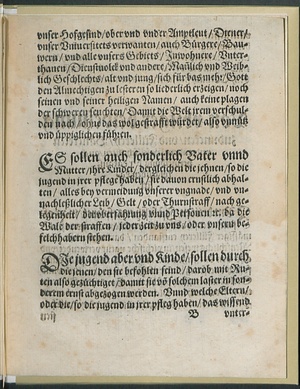 vnser Hofgesind/ober vnd vnder Amptleut/Diener/
vnser Vniuersitets verwanten/auch Bürger/Bau-
wern/vnd alle vnsers Gebiets/Inwohnere/Vnter-
thanen/Dienstuolck vnd andere/Mañlich vnd Weib-
lich Geschlechts/alt vnd jung/sich für baß mehr/Gott
den Allmechtigen zu lestern so liederlich erzeigen/noch
seinen vnd seiner heiligen Namen/auch keine plagen
der schweren seuchten/Damit die Welt jren verschul-
den nach/ohne das wolgestrafft würdet/also vnnütz
vnd üppiglichen führen.
ES sollen auch sonderlich Vater vnnd
Mutter/ihre Kinder/dergleichen die jehnen/so die
jugend in jrer pfleg haben/sie dauon ernstlich abhal-
ten/alles bey vermeidung vnserer vngnade/vnd vn-
nachleßlicher Leib/Gelt/oder Thurnstraff/nach ge-
legenheit/der vberfahrung vnnd Personen ꝛc. da die
Wale der straffen/jeder zeit zu vns/oder vnsern be-
felchhabern stehen.
DIe jugend aber vnd Kinde/sollen durch
die jenen/den sie befohlen seind/darob mit Ru-
ten also gezüchtiget/damit sie võ solchem laster in son-
derem ernst abgezogen werden. Vnnd welche Eltern/
oder die/so die jugend in jrer pfleg haben/das wissend
B vnter-